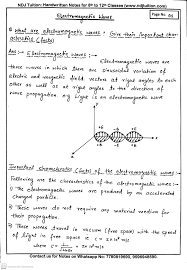 NDJ Tuition: Handwritten Notes for 6th to 12th Classes (www.ndjtuition.com)
Electromagnetic Wave
Page No. 01
Q What are electromagnetic waves? Give their important char-
acteristics (facts)
Ans:- Electromagnetic waves:-
Electromagnetic waves are
those waves in which there are sinusoidal variation of
electric and magnetic field vectors at right angles to each
other as well as at right angles to the direction of
wave propagation. e.g. Light is an electromagnetic wave.
Important characteristics (facts) of the electromagnetic waves:-
Following are the characteristics of the electromagnetic waves:-
(i) The electromagnetic waves are produced by an accelerated
charged particle.
(ii) These waves do not require any material medium for
their propagation.
(iii) These waves travel in vacuum (free space) with the speed
of light in free space i.e. c = 3×10⁸ m/s
Contact us for Notes on Whatsapp No: